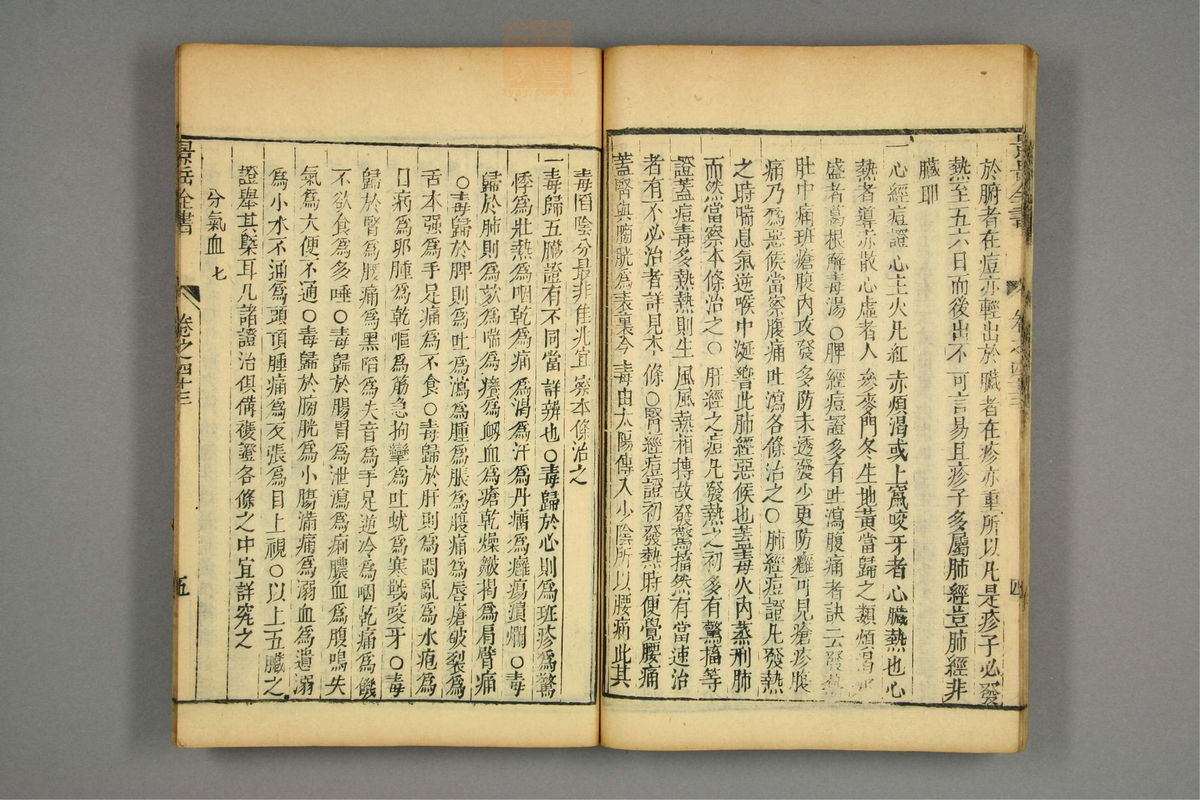 於腑者在痘亦輕出於臟者在疹亦重所以凡是疹子必發
熱至五六日而後出不可言易且疹子多屬肺經豈肺經非
臟耶
一心經痘證心主火凡紅赤煩渴或上竄咬牙者心臟熱也心
熱者導赤散心虛者人參麥門冬生地黃當歸之類煩渴
盛者葛根解毒湯○脾經痘證多有吐瀉腹痛者訣云發熱
肚中痛班瘡腹內攻發多防未透發少更防癰可見瘡疹腹
痛乃爲惡候當察腹痛吐瀉各條治之○肺經痘證凡發熱
之時喘息氣逆喉中涎響此肺經惡候也蓋毒火內蒸刑肺
而然當察本條治之○肝經之痘凡發熱之初多有驚搐等
證蓋痘毒多熱熱則生風風熱相摶故發驚搐然有當速治
者有不必治者詳見本條○腎經痘證初發熱時便覺腰痛
蓋腎與膀胱爲表裏今毒由太陽傳入少陰所以腰痛此其
景岳全書
卷之四十三
四
毒陷陰分最非佳兆宜察本條治之
一毒歸五臟證有不同當詳辨也○毒歸於心則爲班疹爲驚
悸爲壯熱爲咽乾爲痛爲渴爲汗爲丹瘤爲癰瘍潰爛○毒
歸於肺則爲欬爲喘爲癢爲衂血爲瘡乾燥皺揭爲肩臂痛
○毒歸於脾則爲吐爲瀉爲腫爲脹爲腹痛爲唇瘡破裂爲
舌本强爲手足痛爲不食○毒歸於肝則爲悶亂爲水疱爲
目病爲卵腫爲乾嘔爲筋急拘攣爲吐蚘爲寒戰咬牙○毒
歸於腎爲腰痛爲黑陷爲失音爲手足逆冷爲咽乾痛爲饑
不欲食爲多唾○毒歸於腸胃爲泄瀉爲痢膿血爲腹鳴失
氣爲大便不通○毒歸於膀胱爲小腸滿痛爲溺血爲遺溺
爲小水不通爲頭頂腫痛爲反張爲目上視○以上五臟之
證舉其槩耳凡諸證治俱備後證各條之中宜詳究之
分氣血 七
景岳全書
卷之四十三
五